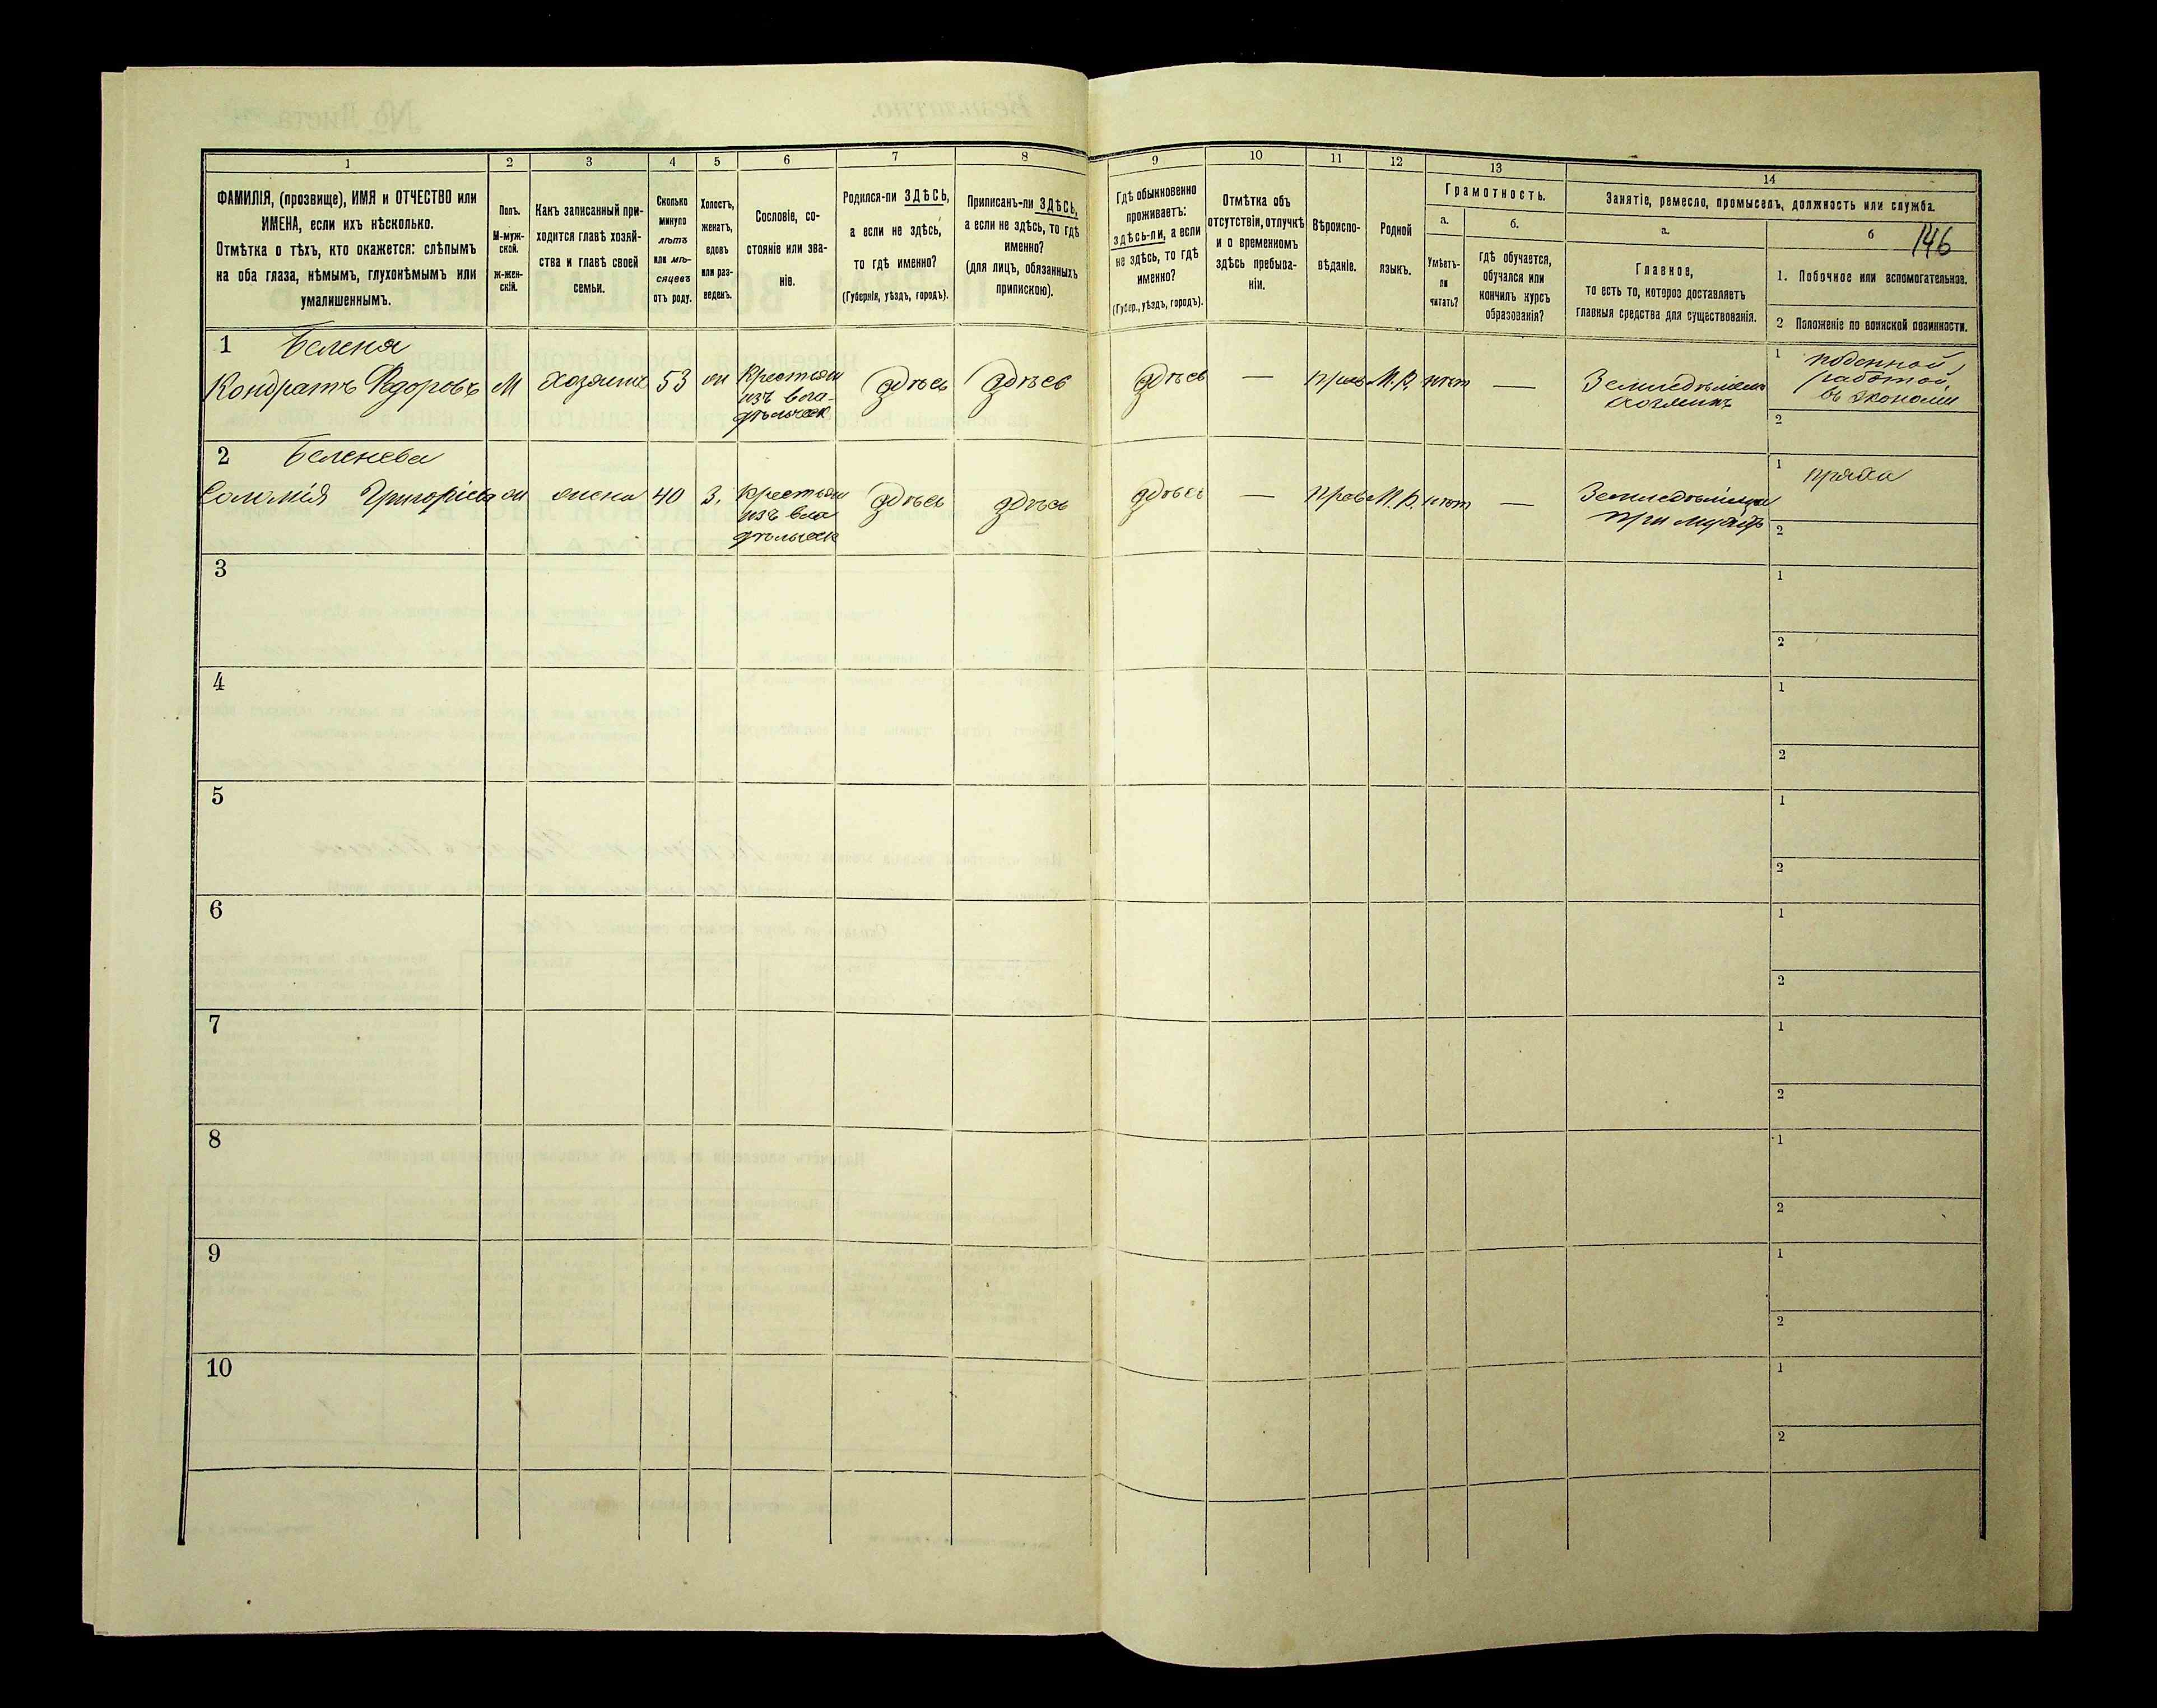 1
2
3
4
5
6
7
8
9
10
11
12
13
14
ФАМИЛІЯ, (прозвище), ИМЯ и ОТЧЕСТВО или
ИМЕНА, если ихъ нѣсколько.
Отмѣтка о тѣхъ, кто окажется: слѣпымъ
на оба глаза, нѣмымъ, глухонѣмымъ или
умалишеннымъ.
Полъ.
М-муж-
ской.
Ж-жен-
скій.
Какъ записанный при-
ходится главѣ хозяй-
ства и главѣ своей
семьи.
Сколько
минуло
лѣтъ
или мѣ-
сяцевъ
отъ роду.
Холостъ,
женатъ,
вдовъ
или раз-
веденъ.
Сословіе, со-
стояніе или зва-
ніе.
Родился-ли ЗДѢСЬ,
а если не здѣсь,
то гдѣ именно?
(Губернія, уѣздъ, городъ).
Приписанъ-ли ЗДѢСЬ,
а если не здѣсь, то гдѣ
именно?
(для лицъ, обязанныхъ
припискою).
Гдѣ обыкновенно
проживаетъ:
здѣсь-ли, а если
не здѣсь, то гдѣ
именно?
(Губер., уѣздъ, городъ).
Отмѣтка объ
отсутствіи, отлучкѣ
и о временномъ
здѣсь пребыва-
ніи.
Вѣроиспо-
вѣданіе.
Родной
языкъ.
Грамотность.
а.
б.
Умѣетъ-
ли
читать?
гдѣ обучается,
обучался или
кончилъ курсъ
образованія?
Занятіе, ремесло, промыселъ, должность или служба.
а.
б
146
Главное,
то есть то, которое доставляетъ
главныя средства для существованія.
1. Побочное или вспомогательное.
2 Положеніе по воинской повинности.
1 Беленя
Кондратъ Федоровъ М хозяинъ 53 жн Крестьян
изъ вла-
дѣльческ здѣсь здѣсь здѣсь — прав М.Р. нѣтъ — Земледѣлецъ
хозяинъ
1 поденной
работой,
въ экономіи
2
2 Беленева
Соломія Григорьева ж жена 40 З. Крестьян
изъ вла
дѣльческ здѣсь здѣсь здѣсь — прав М.Р. нѣтъ — Земледѣлица
при мужѣ
1 пряха
2
3
1
2
4
1
2
5
1
2
6
1
2
7
1
2
8
1
2
9
1
2
10
1
2